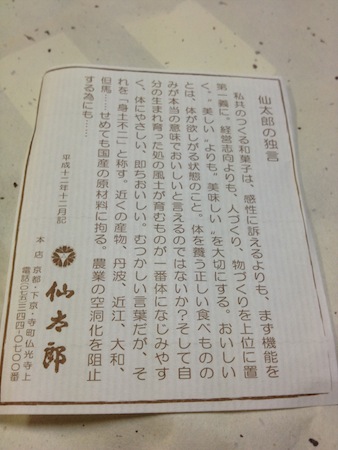 仙太郎の独言
私共のつくる和菓子は、感性に訴えるよりも、まず機能を
第一義に。経営志向よりも、人づくり、物づくりを上位に置
く。〝美しい〟よりも〝美味しい〟を大切にする。おいしい
とは、体が欲しがる状態のこと。体を養う正しい食べものの
みが本当の意味でおいしいと言えるのではないか?そして自
分の生まれ育った処の風土が育むものが一番体になじみやす
く、体にやさしい、即ちおいしい。むつかしい言葉だが、そ
れを「身土不二」と称す。近くの産物、丹波、近江、大和、
但馬……せめても国産の原材料に拘る。農業の空洞化を阻止
する為にも……。
平成十二年十二月記
仙太郎
本店 京都・下京・寺町仏光寺上
電話〇七五-三四四-〇七〇〇番